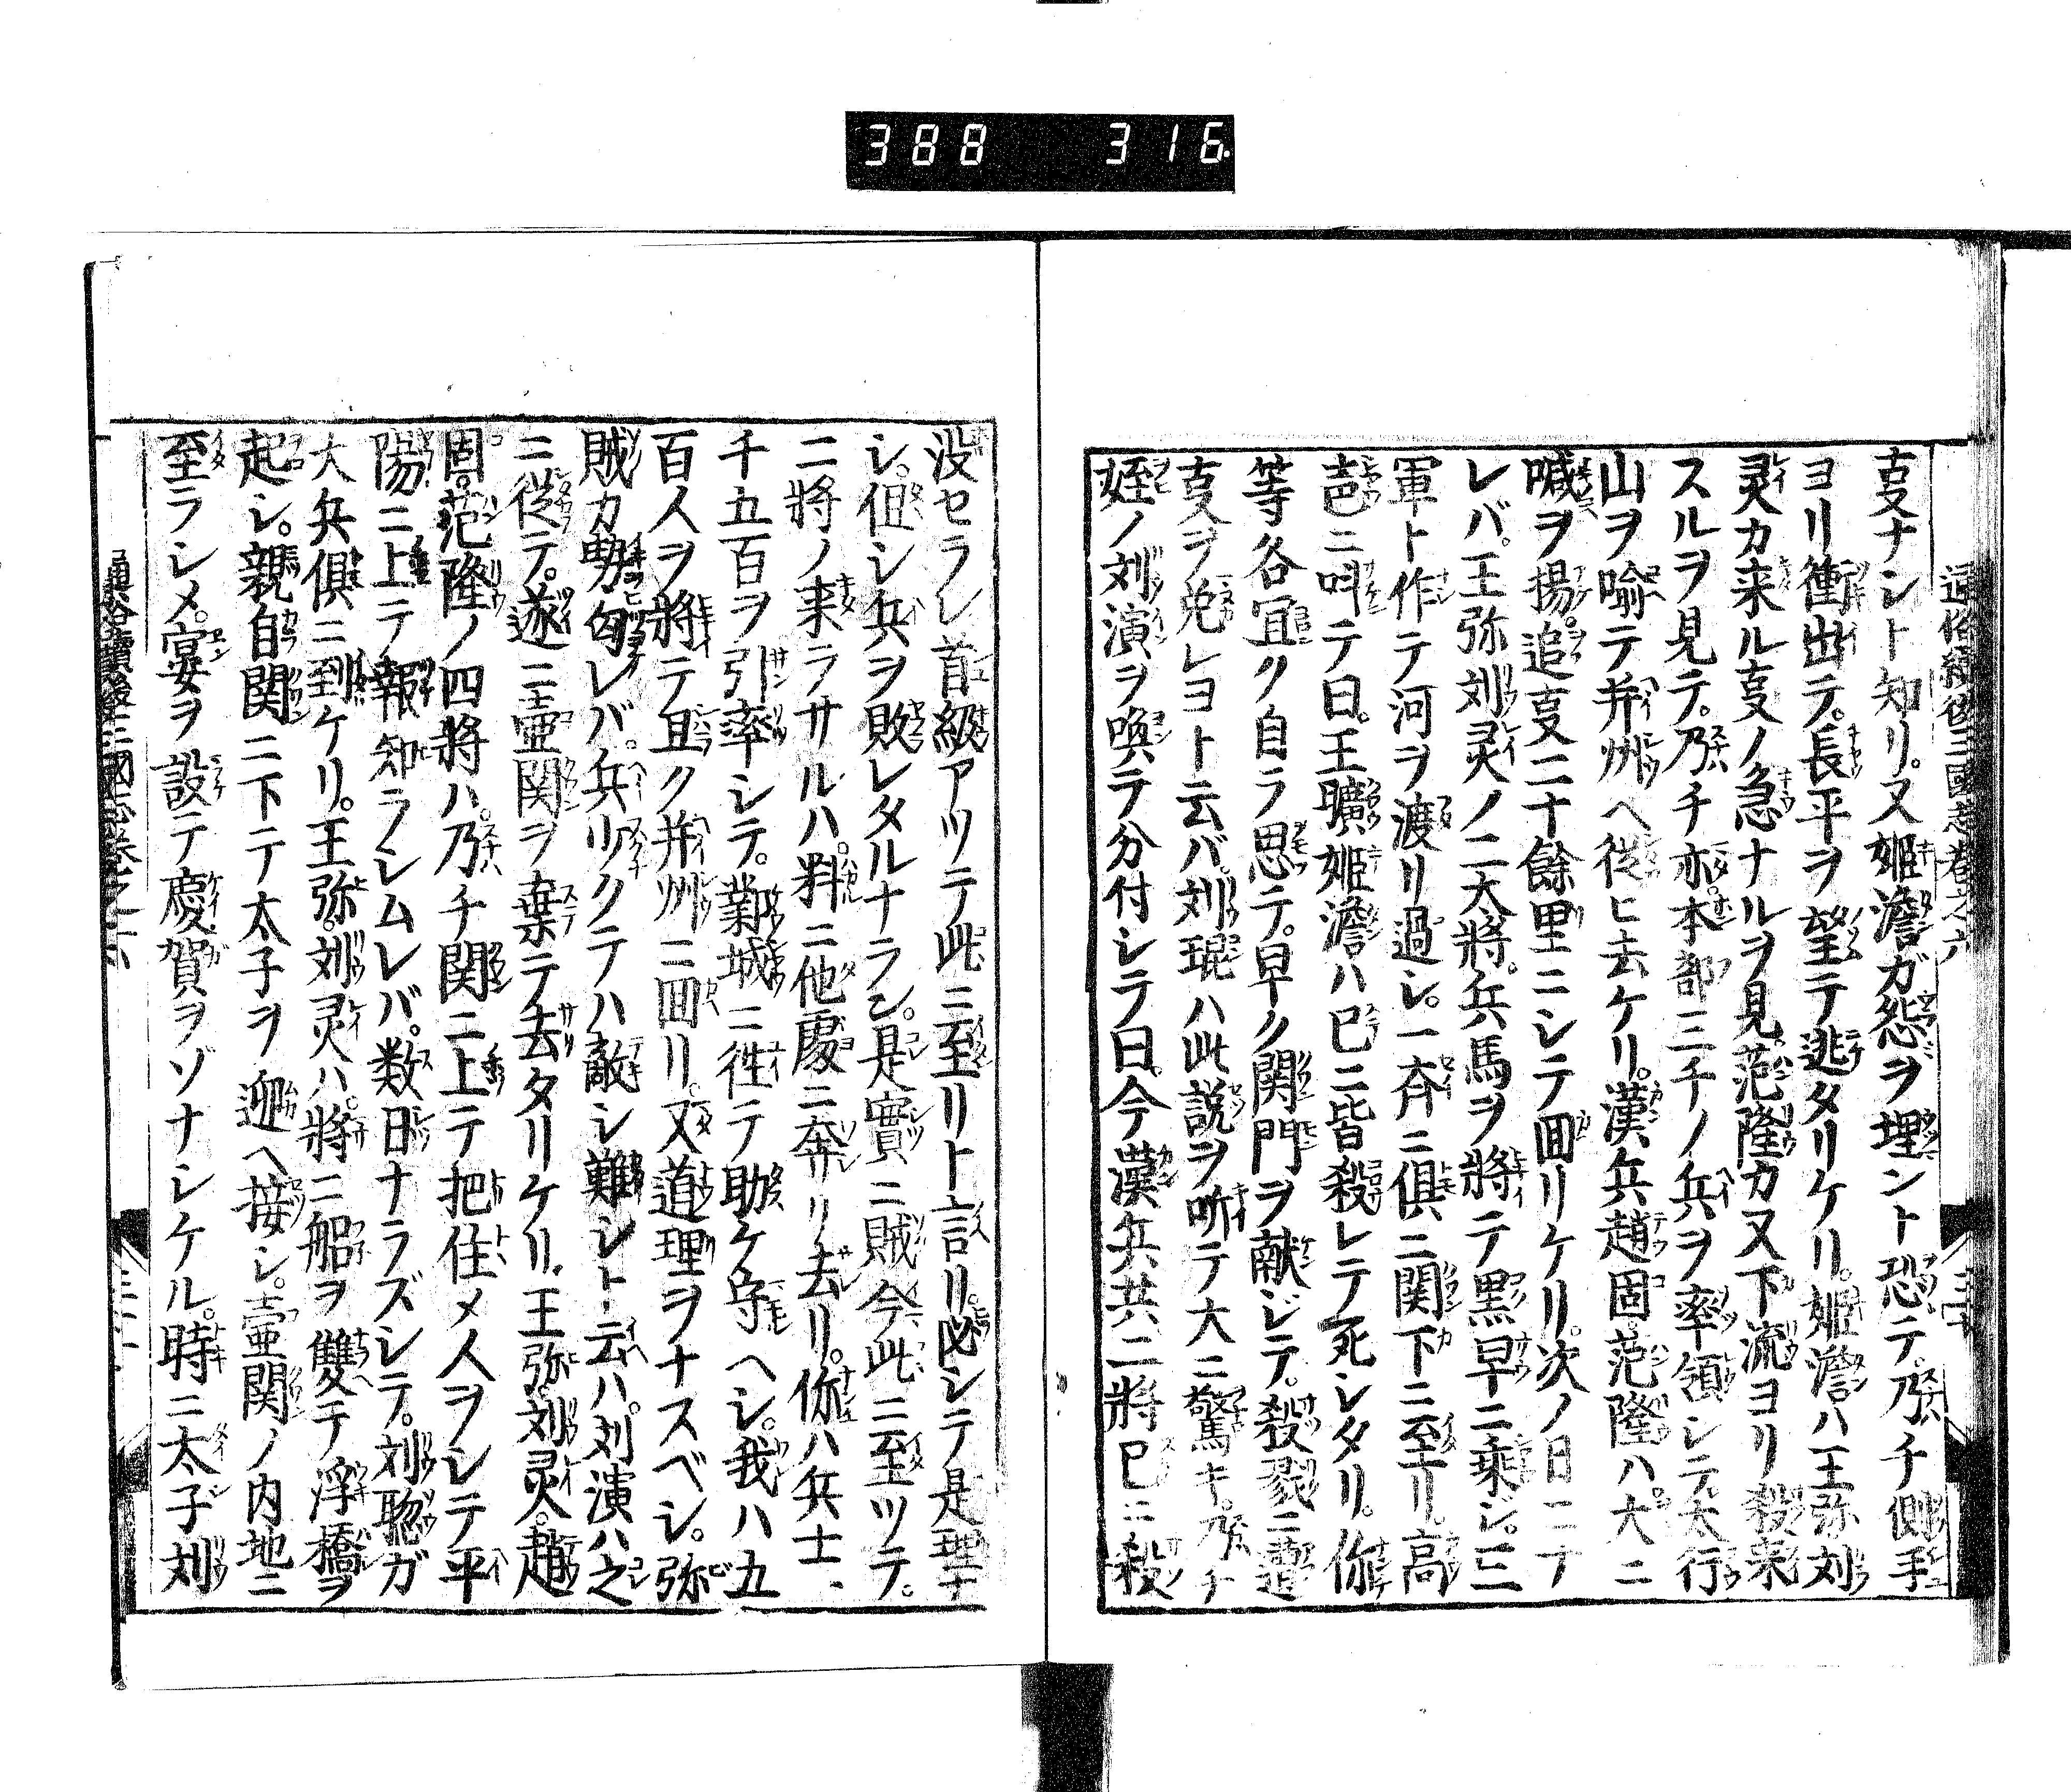 388 316
通俗續後三國志巻之六
叓ナント知リ。又姬澹ガ怨ヲ埋ント恐テ。乃チ側手
ヨリ衝出テ。長平ヲ望テ逃タリケリ。姬澹ハ王弥刘
灵カ来ル叓ノ急ナルヲ見。范隆カ又下流ヨリ殺来
スルヲ見テ。乃チ亦。本部三千ノ兵ヲ率領シテ。太行
山ヲ喻テ并州ヘ從ヒ去ケリ。漢兵趙固。范隆ハ大ニ
喊ヲ揚。追叓二十餘里ニシテ回リケリ。次ノ日ニテ
レバ。王弥刘灵ノ二大將。兵馬ヲ將テ黑早ニ乘ジ。三
軍ト作テ河ヲ渡リ過シ。一斉ニ俱ニ関下ニ至リ。高
声ニ呌テ曰。王曠姬澹ハ已ニ皆殺レテ死シタリ。你
等各宜ク自ラ思テ。早ク関門ヲ献ジテ。殺戮ニ遭
叓ヲ免レヨト云バ。刘琨ハ此說ヲ听テ大ニ驚キ。乃チ
姪ノ刘演ヲ喚テ分付シテ曰。今漢兵共二將已ニ殺
没セラレ首級アツテ此ニ至リト言リ。必シテ是理ナ
シ。伹シ兵ヲ敗レタルナラン。是實ニ賊今此ニ至ツテ。
二將ノ来ラサルハ。料ニ他處ニ奔リ去リ。你ハ兵士、
千五百ヲ引率シテ。鄴城ニ徃テ助ケ守ヘシ。我ハ五
百人ヲ將テ且ク并州ニ回リ。又道理ヲナスベシ。弥
賊カ㔟㐫レバ。兵少クテハ敵シ難シト云ハ。刘演ハ之
ニ從テ。遂ニ壷関ヲ棄テ去タリケリ。王弥。刘灵。趙
固。范隆ノ四將ハ。乃チ関ニ上テ把住メ人ヲシテ平
陽ニ上テ報知ラシムレバ。数日ナラズシテ。刘聡ガ
大兵俱ニ到ケリ。王弥。刘灵ハ。將ニ船ヲ雙テ浮橋ヲ
起シ。親自関ニ下テ太子ヲ迎ヘ接シ。壷関ノ内地ニ
至ラシメ。宴ヲ設テ慶賀ヲゾナシケル。時ニ太子刘
通俗續後三國志巻之六